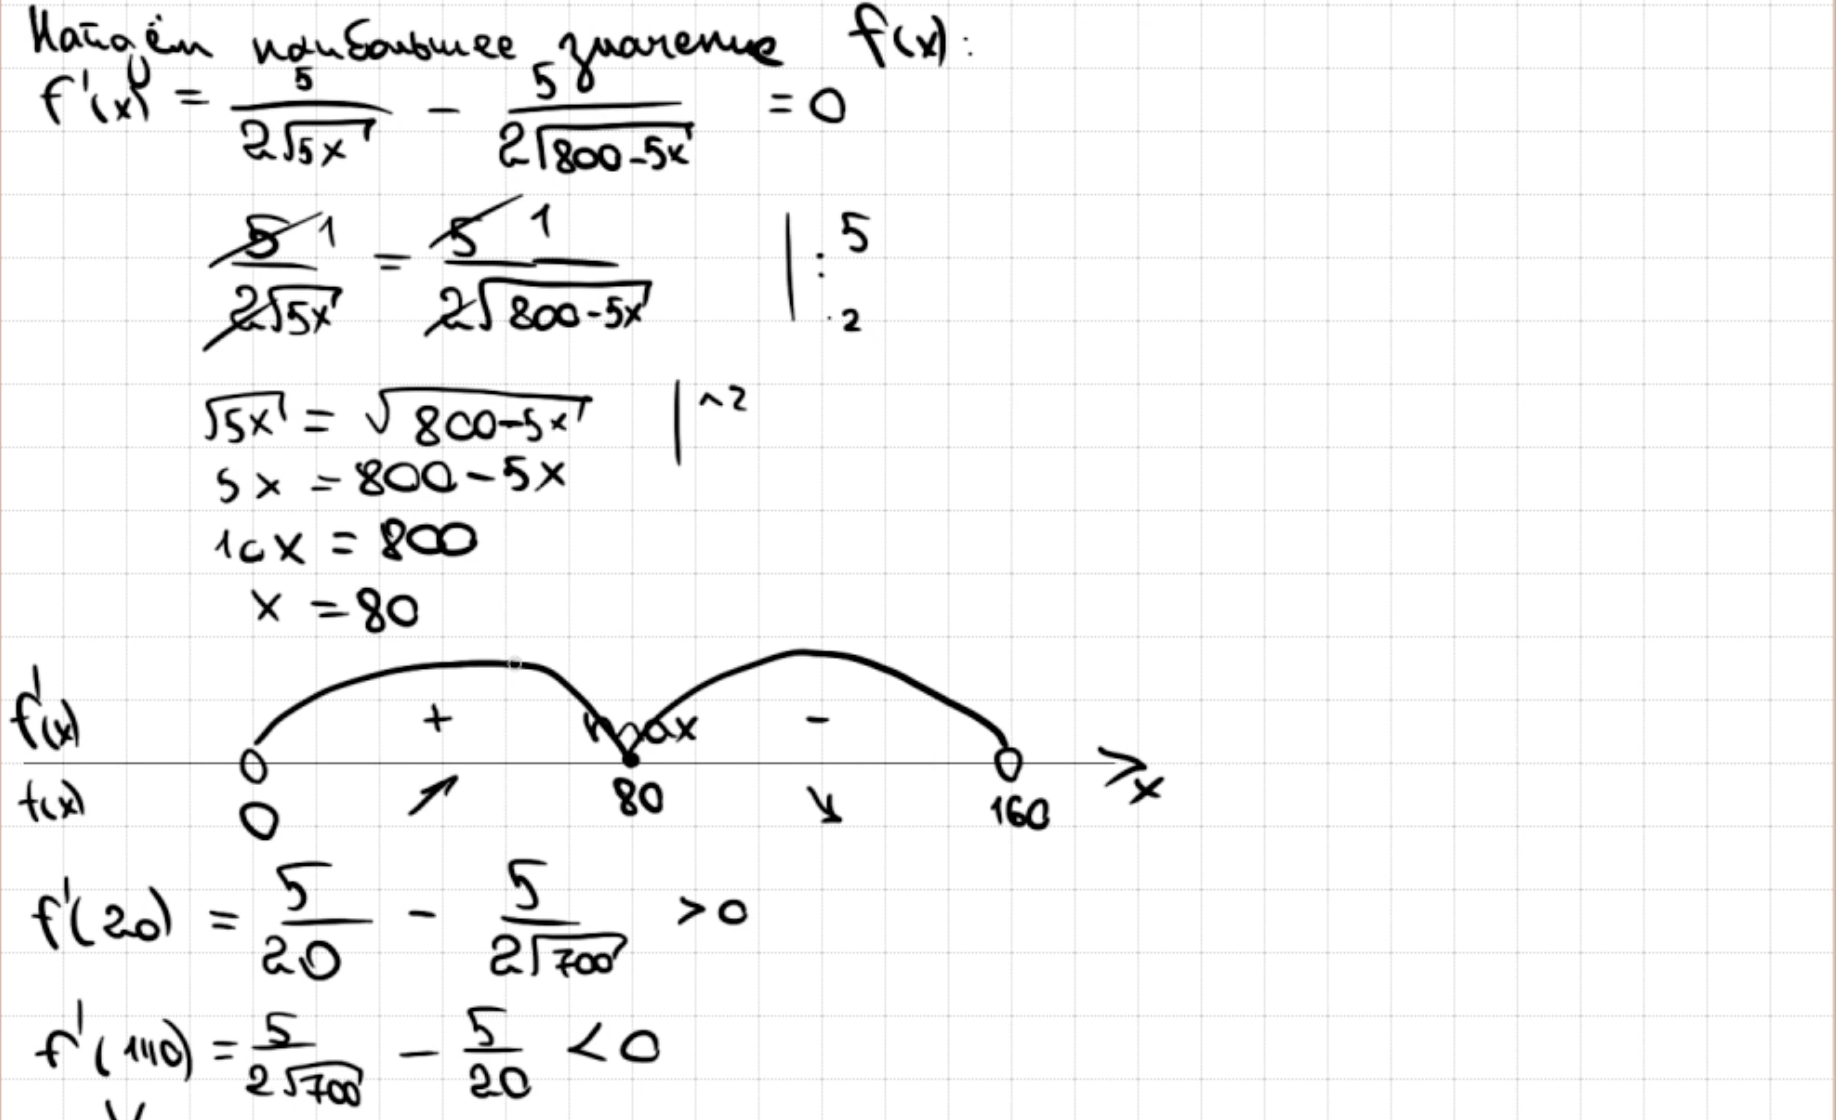 Найдём наибольшее значение f(x):
f'(x) = 5/(2√5x) - 5/(2√800-5x) = 0
5 1/(2√5x) = 5 1/(2√800-5x) | : 5 . 2
√5x = √800-5x | ^2
5x = 800-5x
10x = 800
x = 80
f'(x) + max -
f(x) 0 ↗ 80 ↘ 160 x
f'(20) = 5/20 - 5/(2√700) > 0
f'(140) = 5/(2√700) - 5/20 < 0